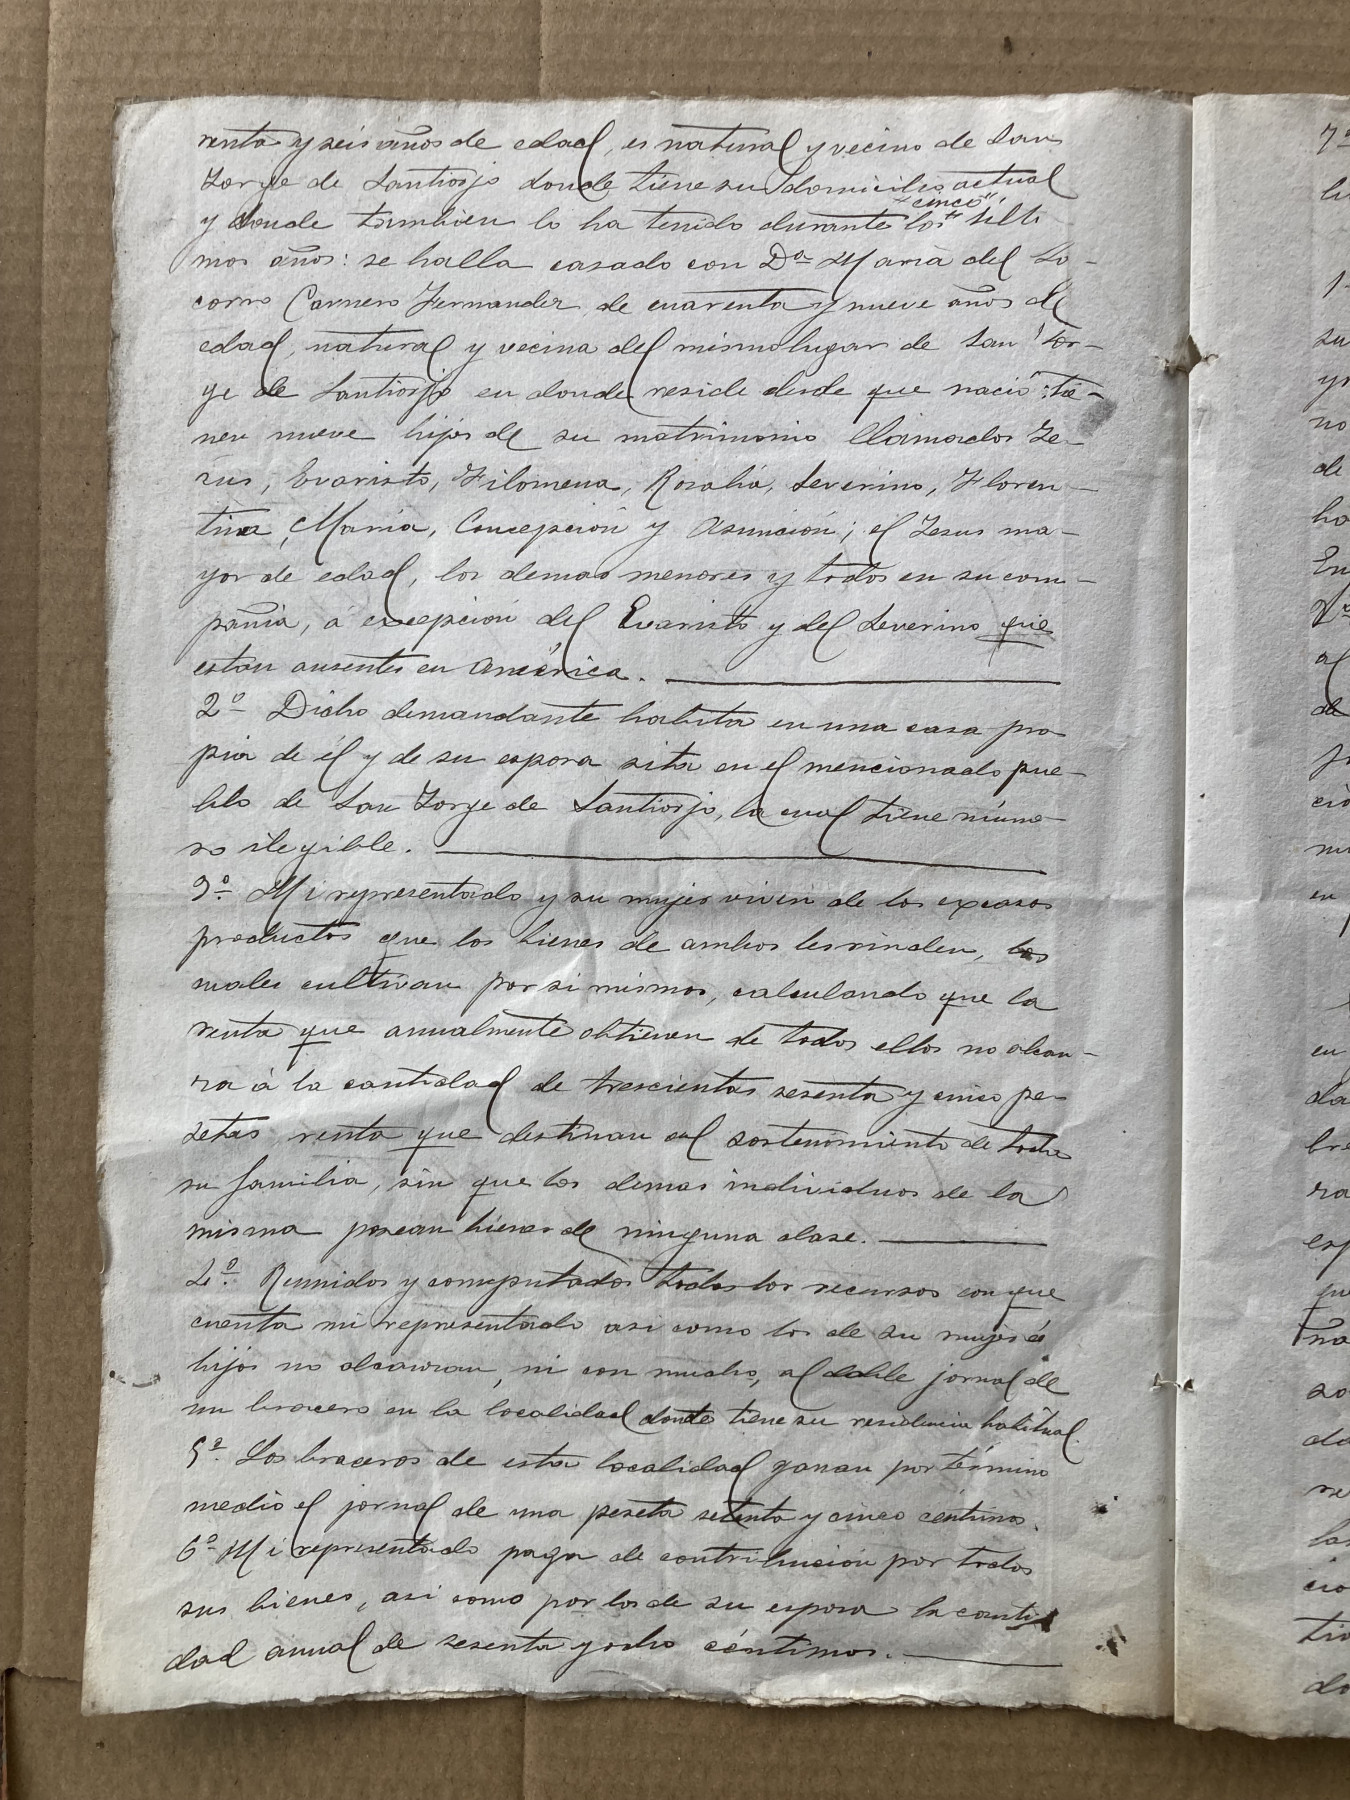 renta y seis años de edad, es natural y vecino de San
Jorge de Santiorjo donde tiene su domicilio actual
"cinco"
y donde tambien lo ha tenido durante los " últi
mos años: se halla casado con Dª Maria del So-
corro Carnero Fernandez de cuarenta y nueve años de
edad, natural y vecina del mismo lugar de San Jor-
ge de Santiorjo en donde reside desde que nació: tie-
nen nueve hijos de su matrimonio llamados Je-
sus, Evaristo, Filomena, Rosalia, Severino, Floren-
tina, Maria, Concepción y Asunción; el Jesus ma-
yor de edad, los demas menores y todos en su com-
pañia, á excepción del Evaristo y del Severino que
estan ausentes en América.
2º Dicho demandante habita en una casa pro
pia de él y de su esposa sita en el mencionado pue-
blo de San Jorge de Santiorjo, la cual tiene núme-
ro ilegible.
3º. Mi representado y su mujer viven de los escasos
productos que los bienes de ambos les rinden, los
cuales cultivan por si mismos, calculando que la
renta que anualmente obtienen de todos ellos no alcan-
za á la cantidad de trescientas sesenta y cinco pe-
setas, renta que destinan al sostenimiento de toda
su familia, sin que los demas individuos de la
misma posean bienes de ninguna clase.
4º. Reunidos y computados todos los recursos con que
cuenta mi representado asi como los de su mujer é
hijos no alcanzan, ni con mucho, al doble jornal de
un bracero en la localidad donde tiene su residencia habitual.
5º. Los braceros de esta localidad ganan por término
medio el jornal de una peseta setenta y cinco céntimos.
6º Mi representado paga de contribucion por todos
sus bienes, asi como por los de su esposa la canti
dad anual de sesenta y ocho céntimos.